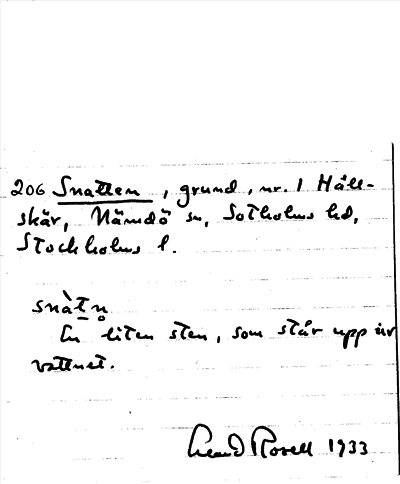 206 Snatten, grund, nr. 1 Häll-
skär, Nämdö sn, Sotholms hd,
Stockholms l.
snàtn̥
En liten sten, som står upp ur
vattnet.
Rosell 1933